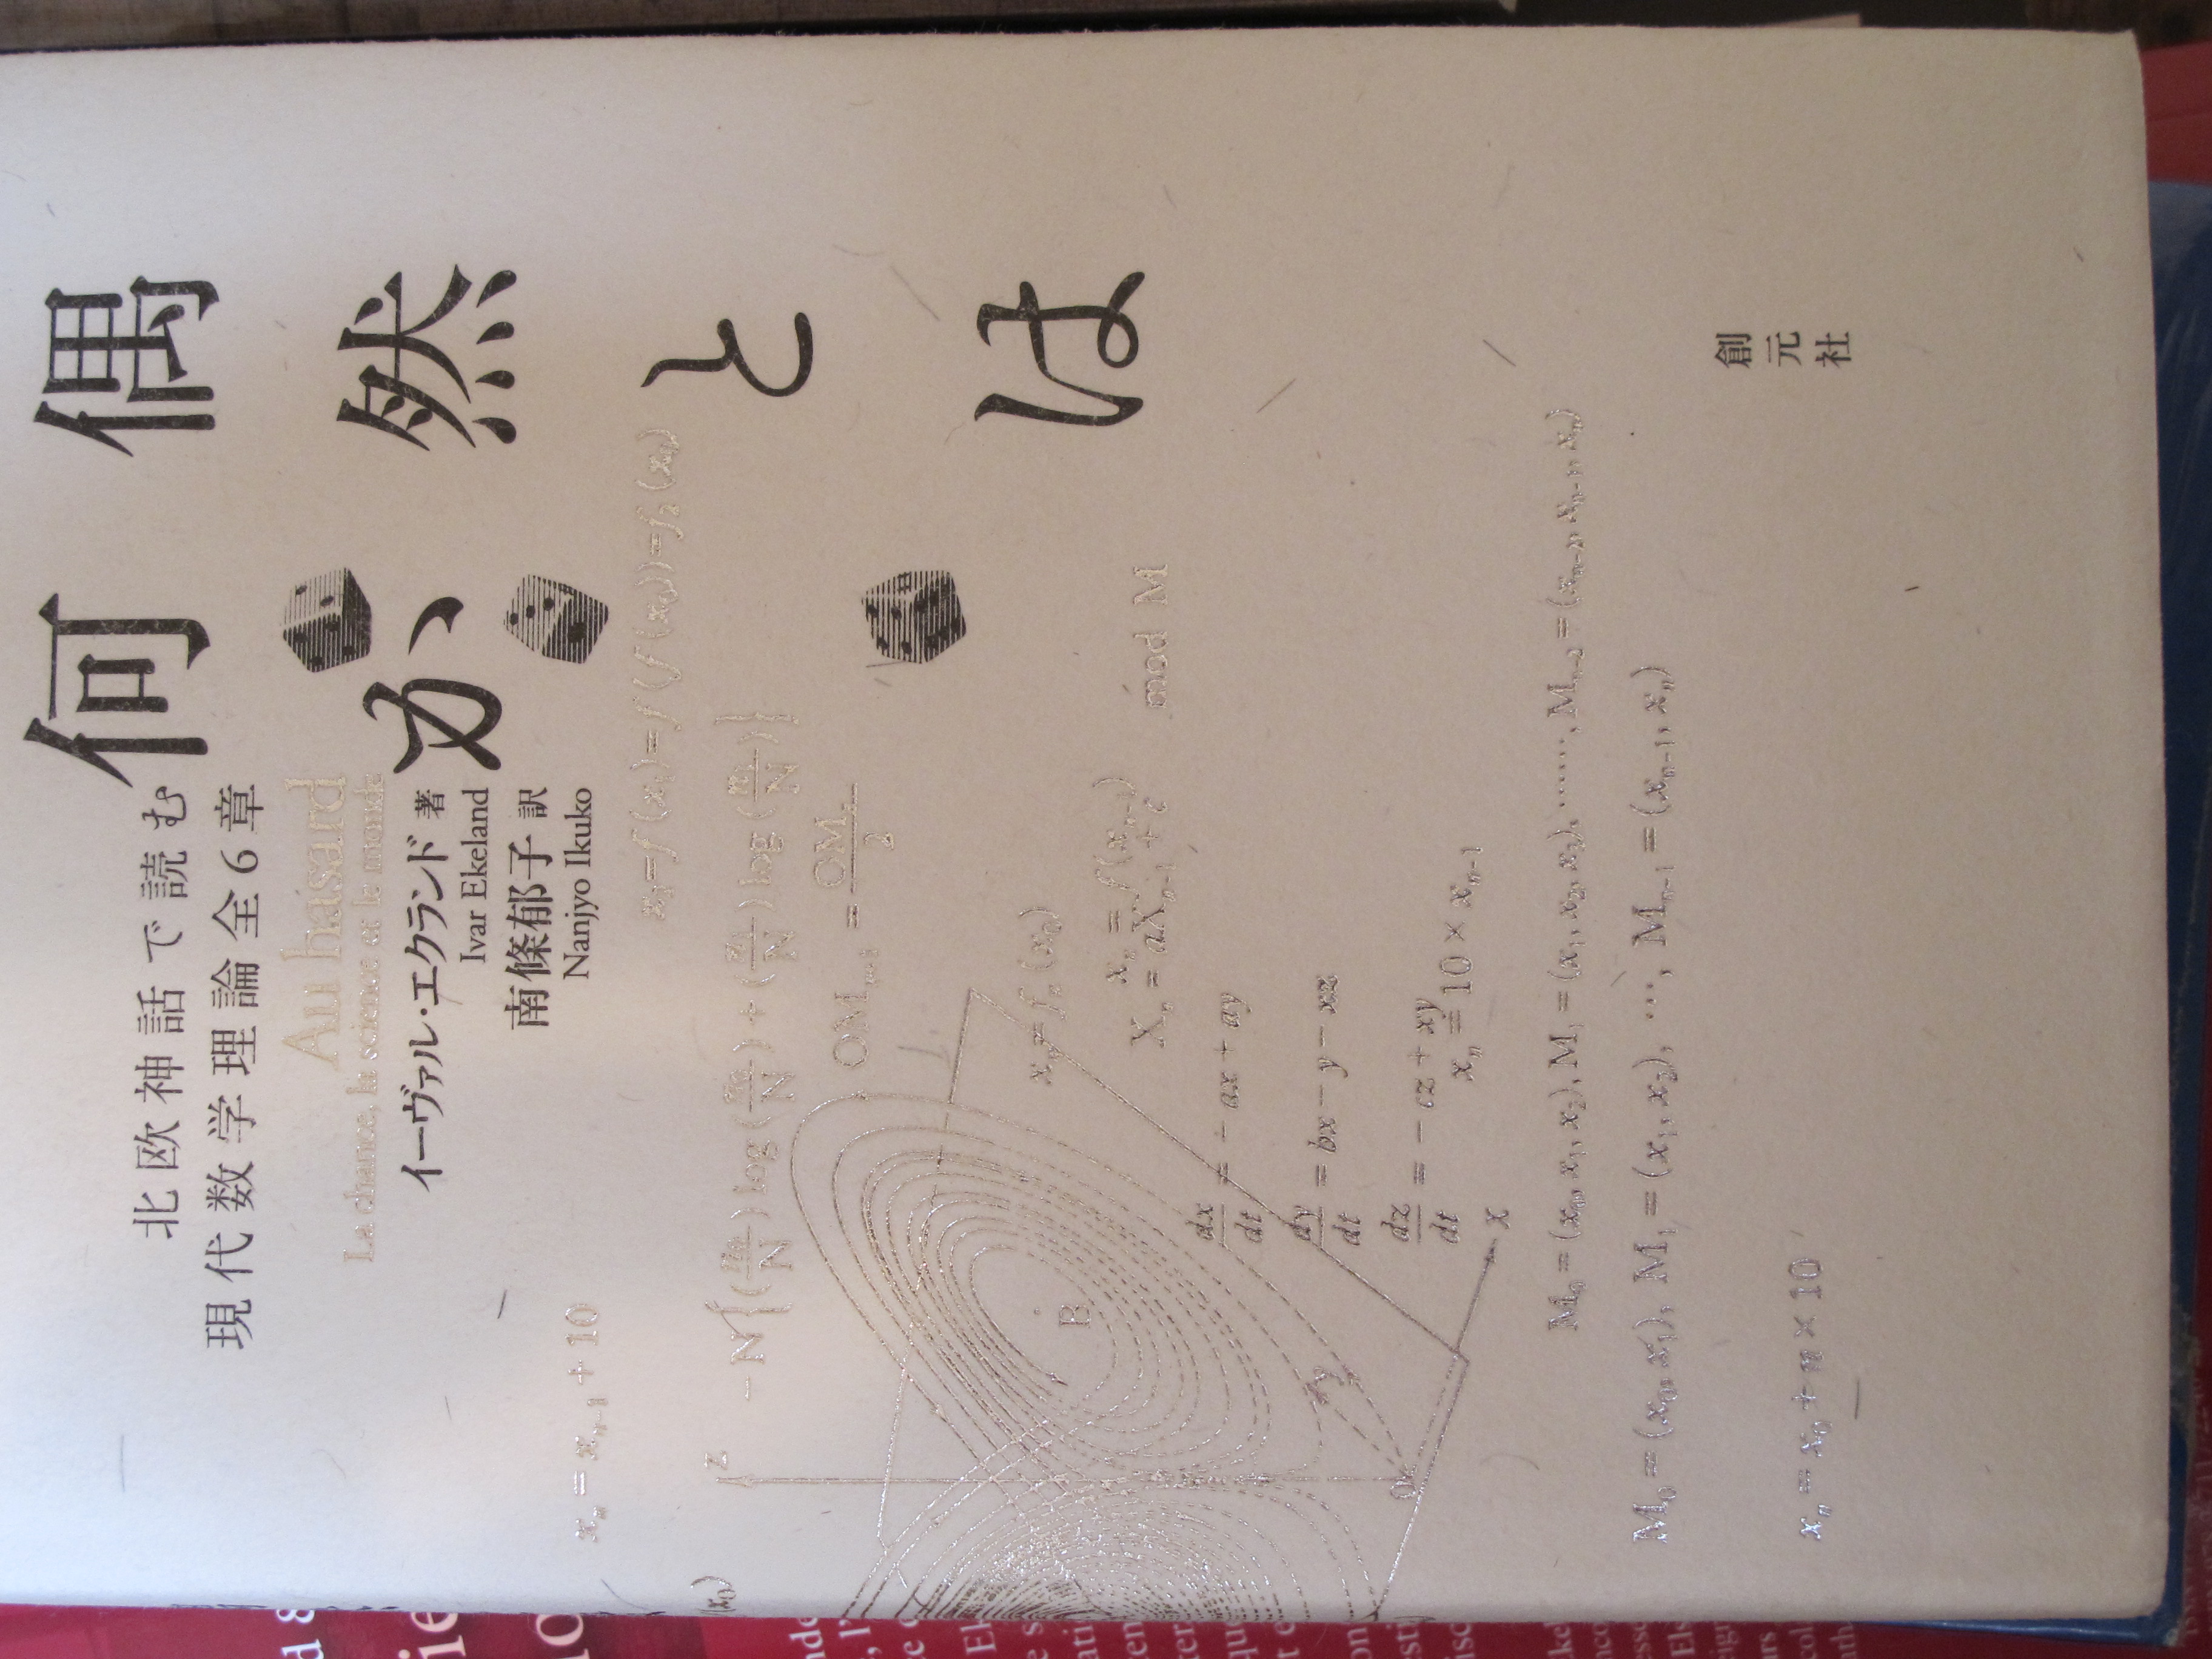 偶然とは
何か
北欧神話で読む
現代数学理論全6章
Au hasard
La chance, la science et le monde
イーヴァル・エクランド 著
Ivar Ekeland
南條郁子 訳
Nanjyo Ikuko
xₙ = xₙ₋₁ + 10
mod M
xₙ = fₙ (x₀)
xₙ = f (xₙ₋₁)
Xₙ = aXₙ₋₁ + c
dx/dt = − ax + ay
dy/dt = bx − y − xz
dz/dt = − cz + xy
xₙ = 10 × xₙ₋₁
z
B
y
0
x
M₀ = (x₀, x₁, x₂), M₁ = (x₁, x₂, x₃), ……, Mₙ₋₂ = (xₙ₋₂, xₙ₋₁, xₙ)
M₀ = (x₀, x₁), M₁ = (x₁, x₂), …, Mₙ₋₁ = (xₙ₋₁, xₙ)
xₙ = x₀ + n × 10
創元社